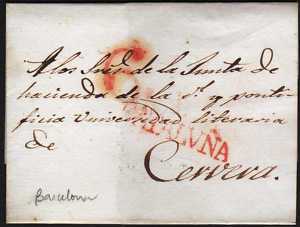 A los Sres. de la Junta de
hacienda de la Rl. y ponti-
ficia Universidad literaria
de
Cervera.
CATALUÑA
Barcelona